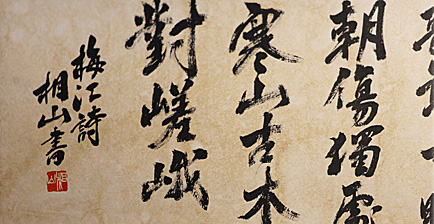 朝傷獨處
寒山古木
對嵯峨
梅江詩
相山書